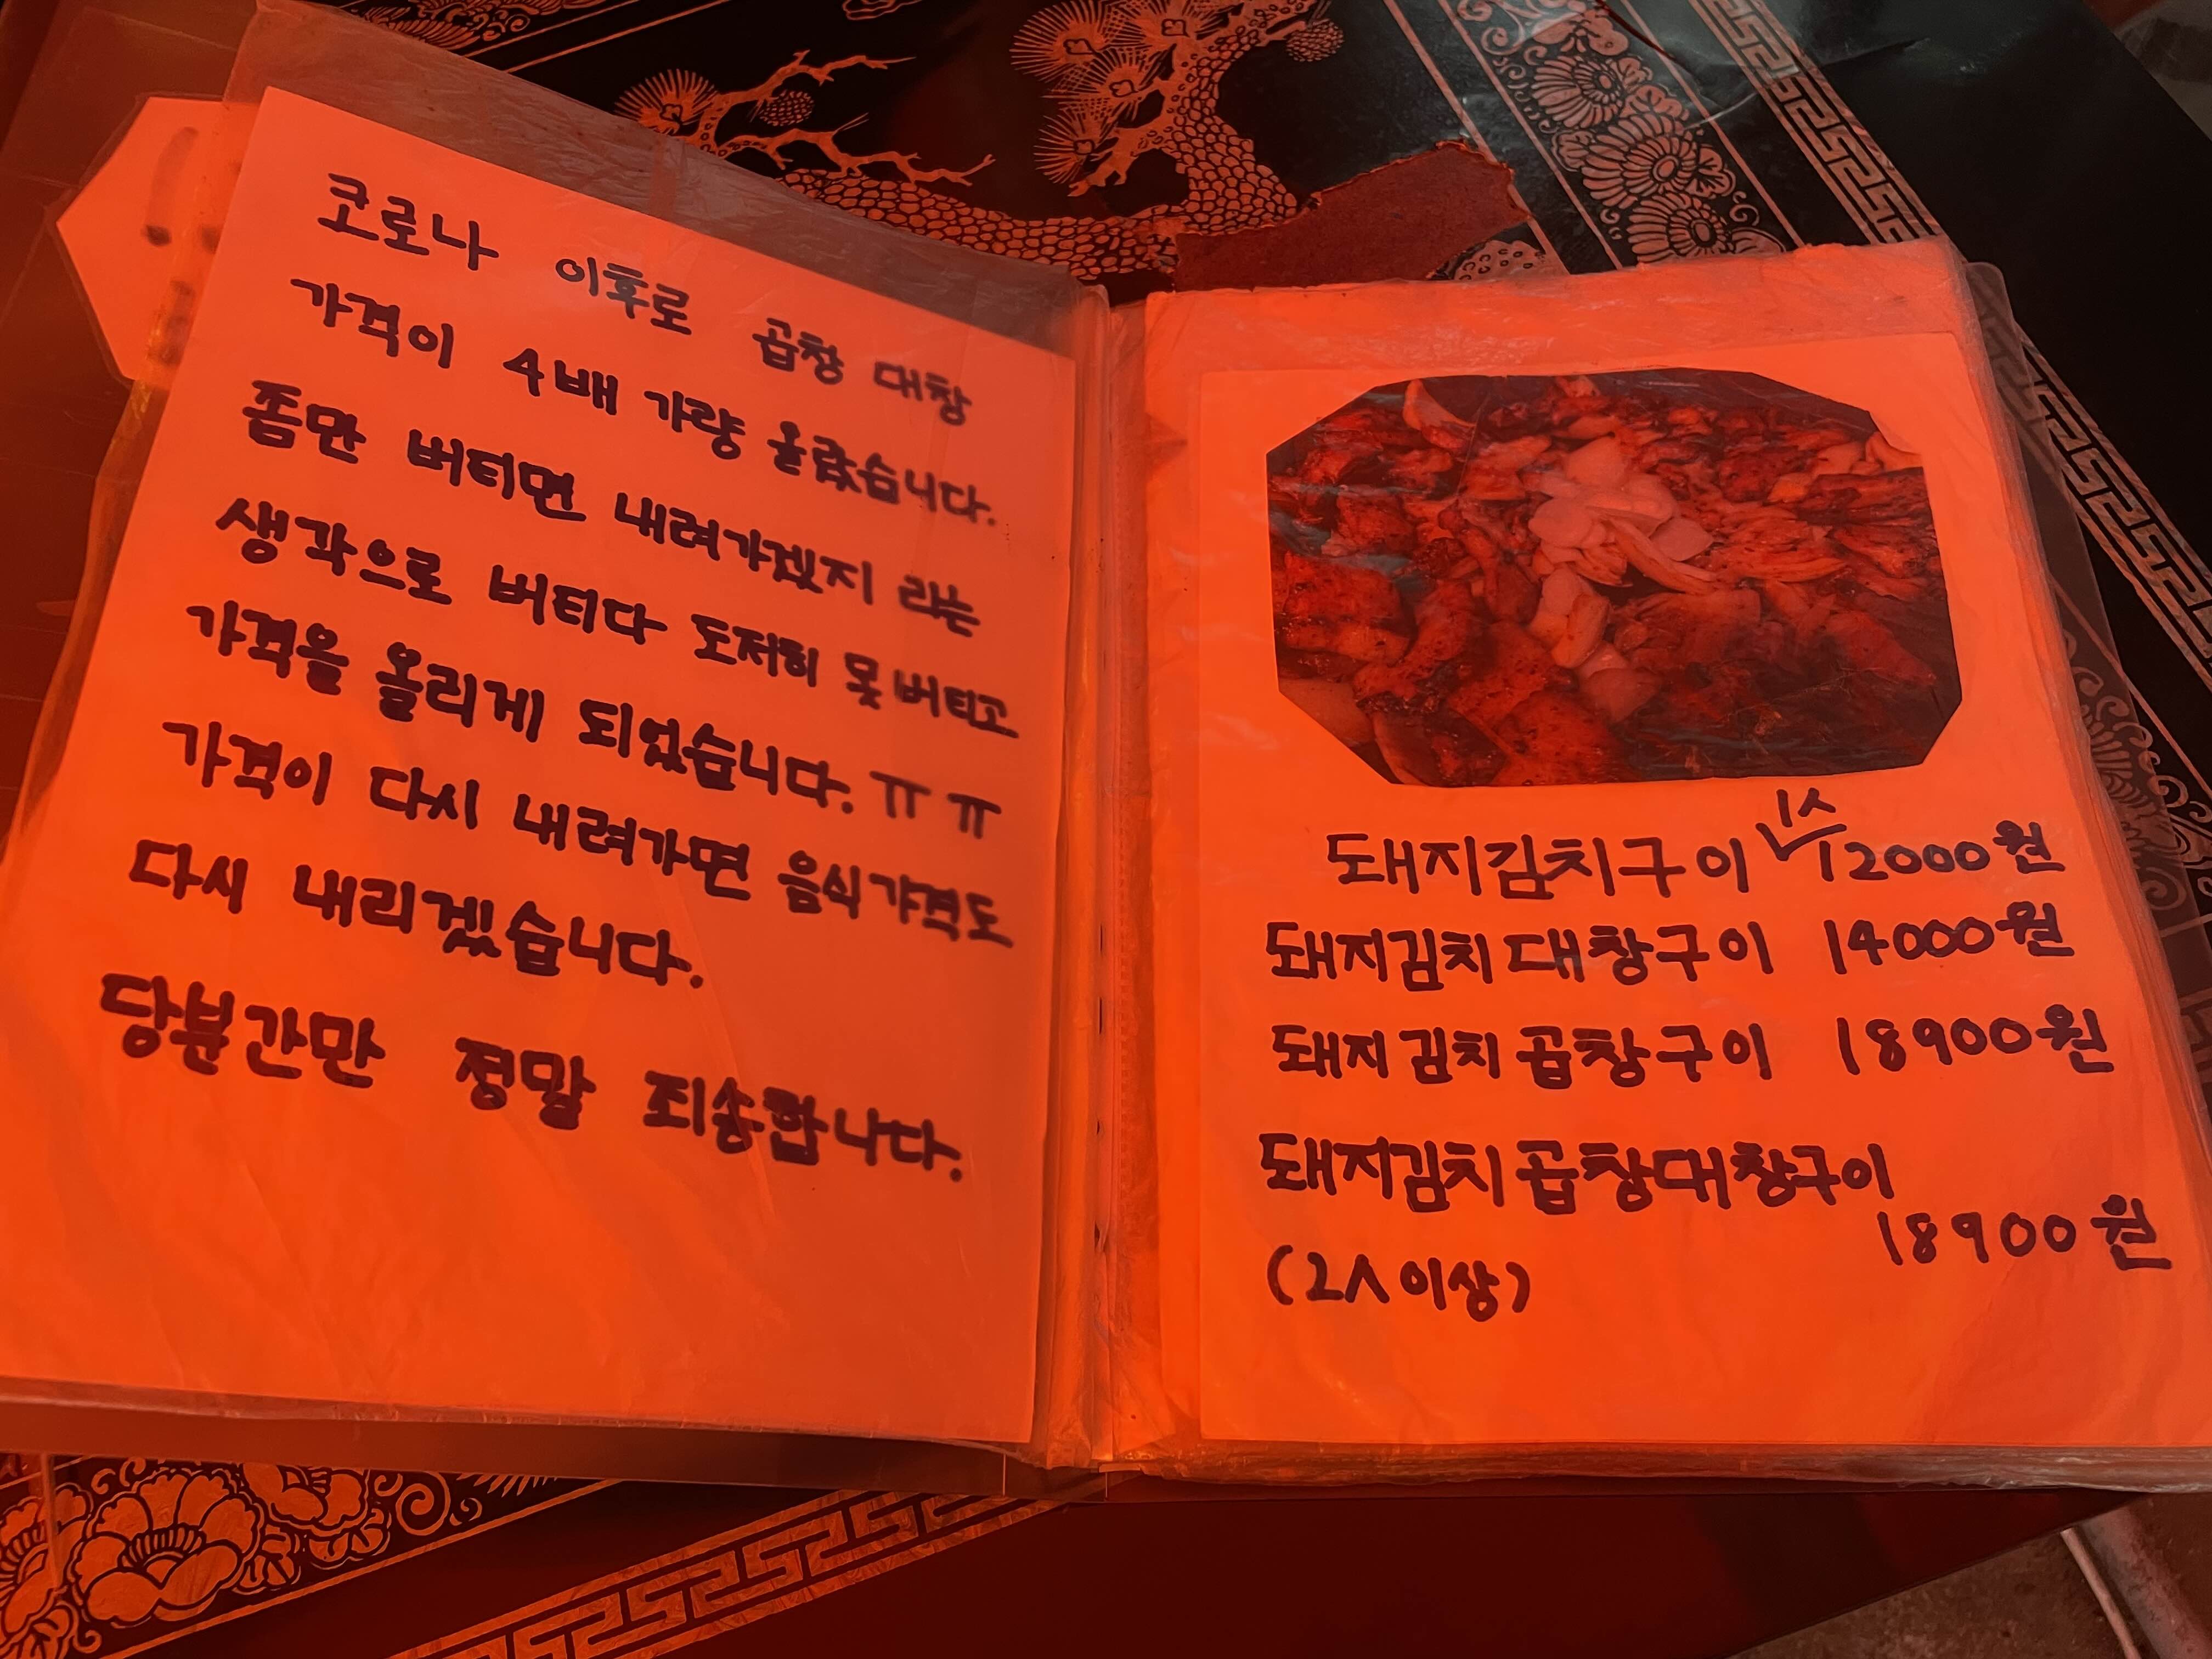 코로나 이후로 곱창 대창
가격이 4배 가량 올랐습니다.
좀만 버티면 내려가겠지 라는
생각으로 버티다 도저히 못버티고
가격을 올리게 되었습니다. ㅠㅠ
가격이 다시 내려가면 음식가격도
다시 내리겠습니다.
당분간만 정말 죄송합니다.
돼지김치구이 12000원
돼지김치대창구이 14000원
돼지김치곱창구이 18900원
돼지김치곱창대창구이
18900원
(2人이상)